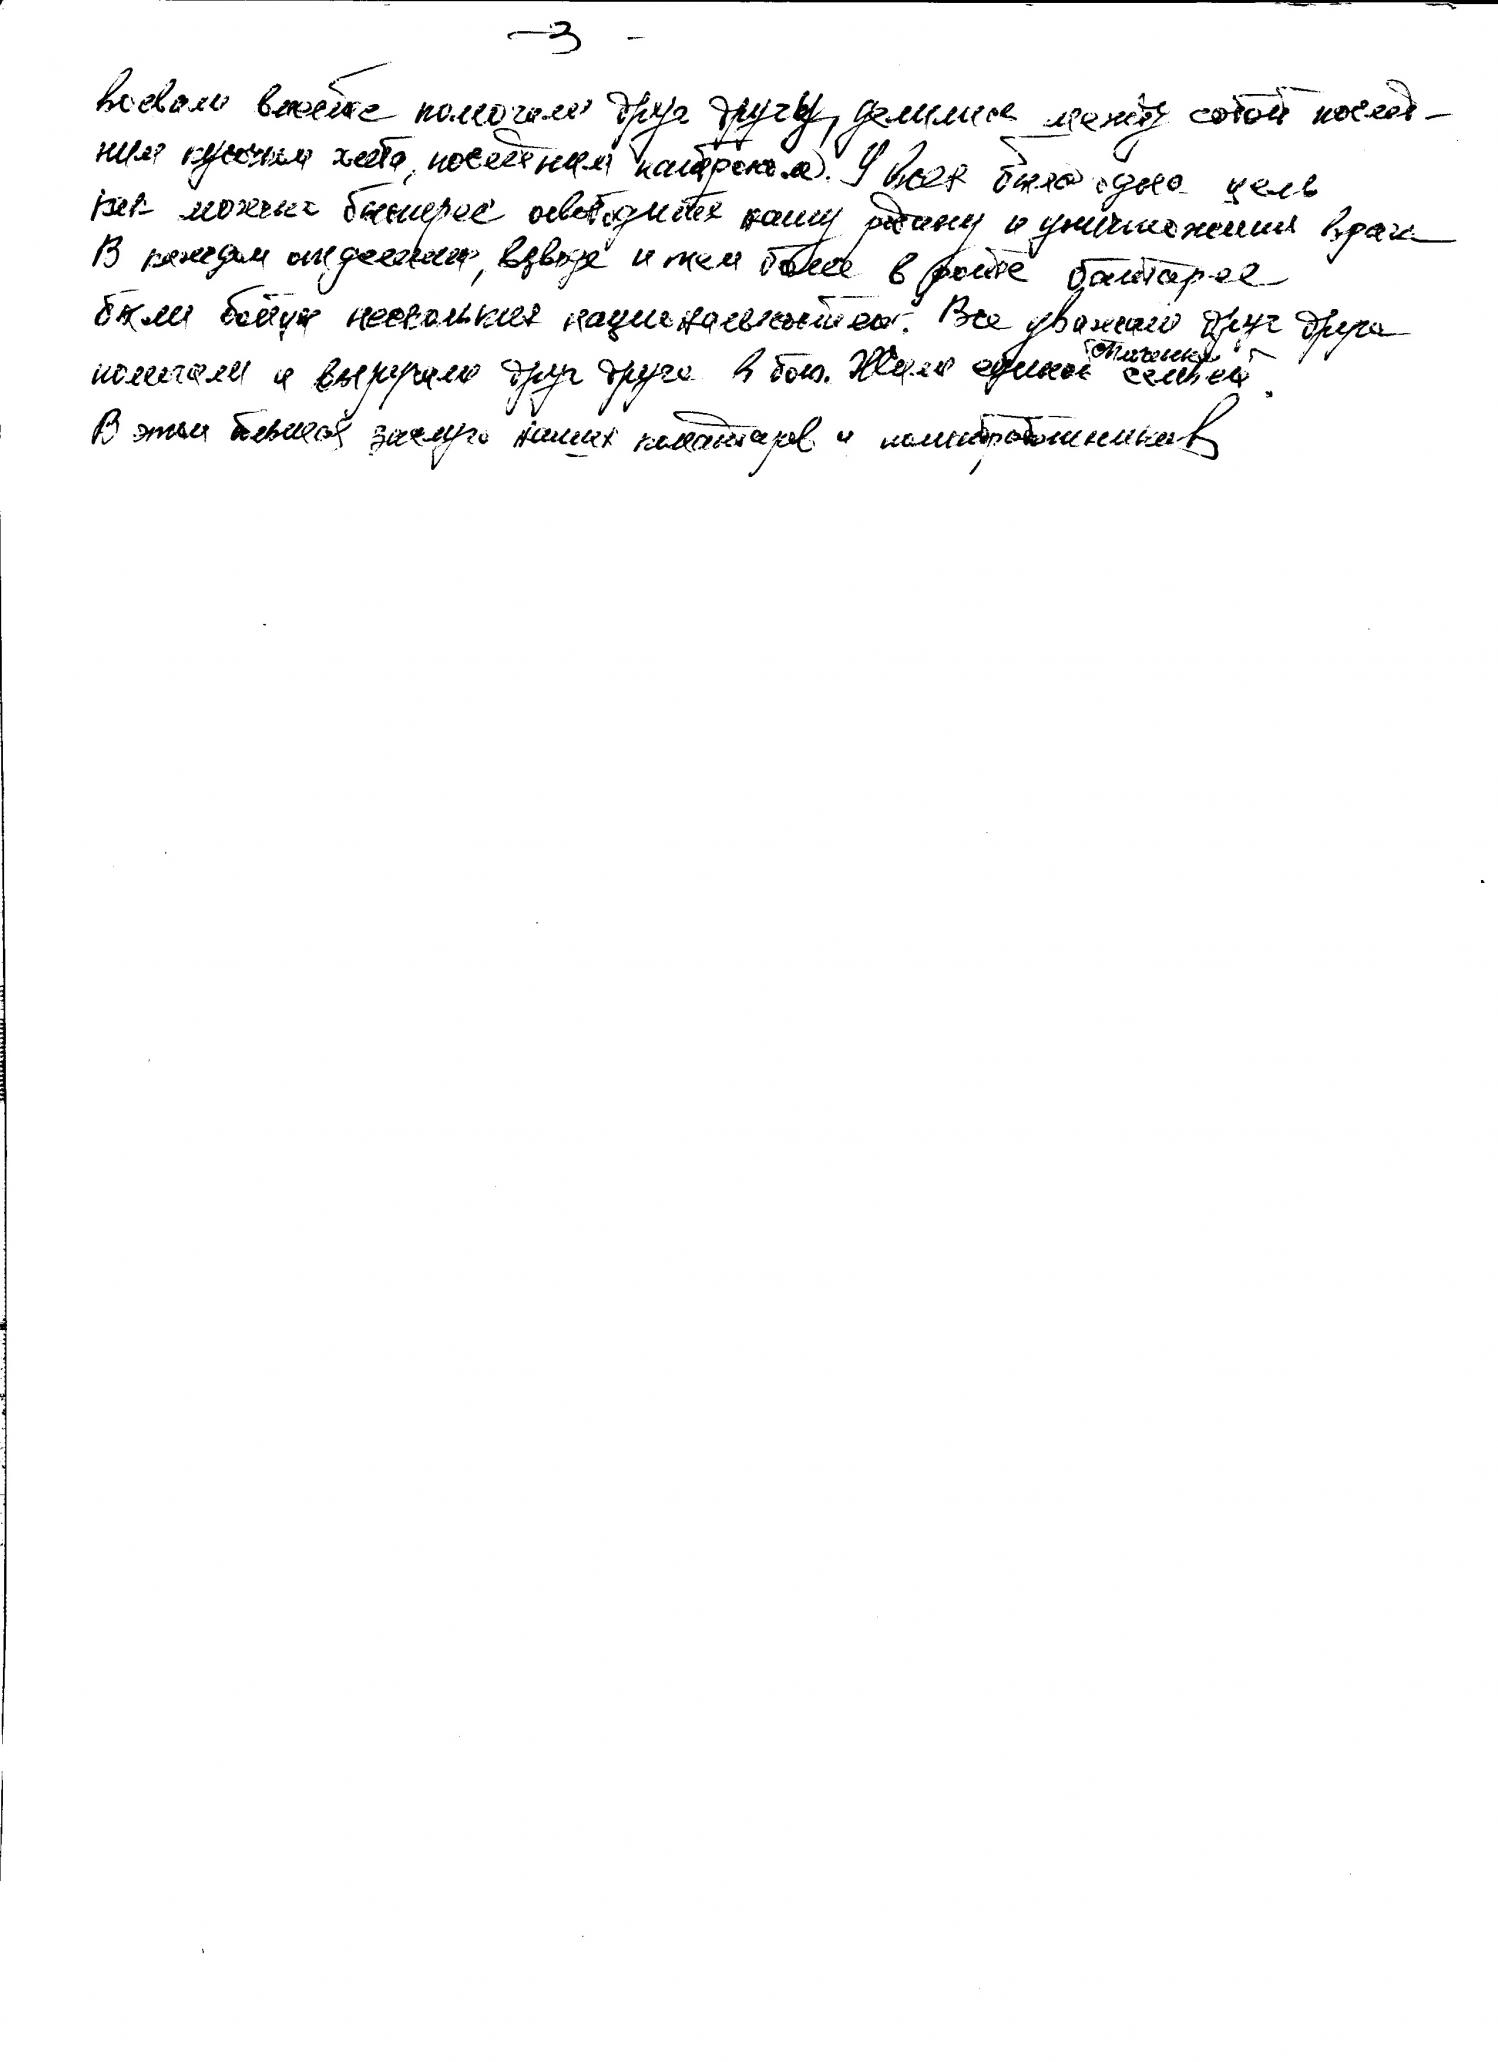 -3-
воевали вместе помогали друг другу, делились между собой послед-
ним кусочком хлеба, последним патроном. У всех была одна цель
как можно быстрее освободить нашу родину и уничтожении врага
В каждом отделении, взводе и тем более в роте батарее
были бойцы нескольких национальностей. Все уважали друг друга
помогали и выручали друг друга в бою. Жили единой семьей.
В этом большая заслуга наших командиров и политработников